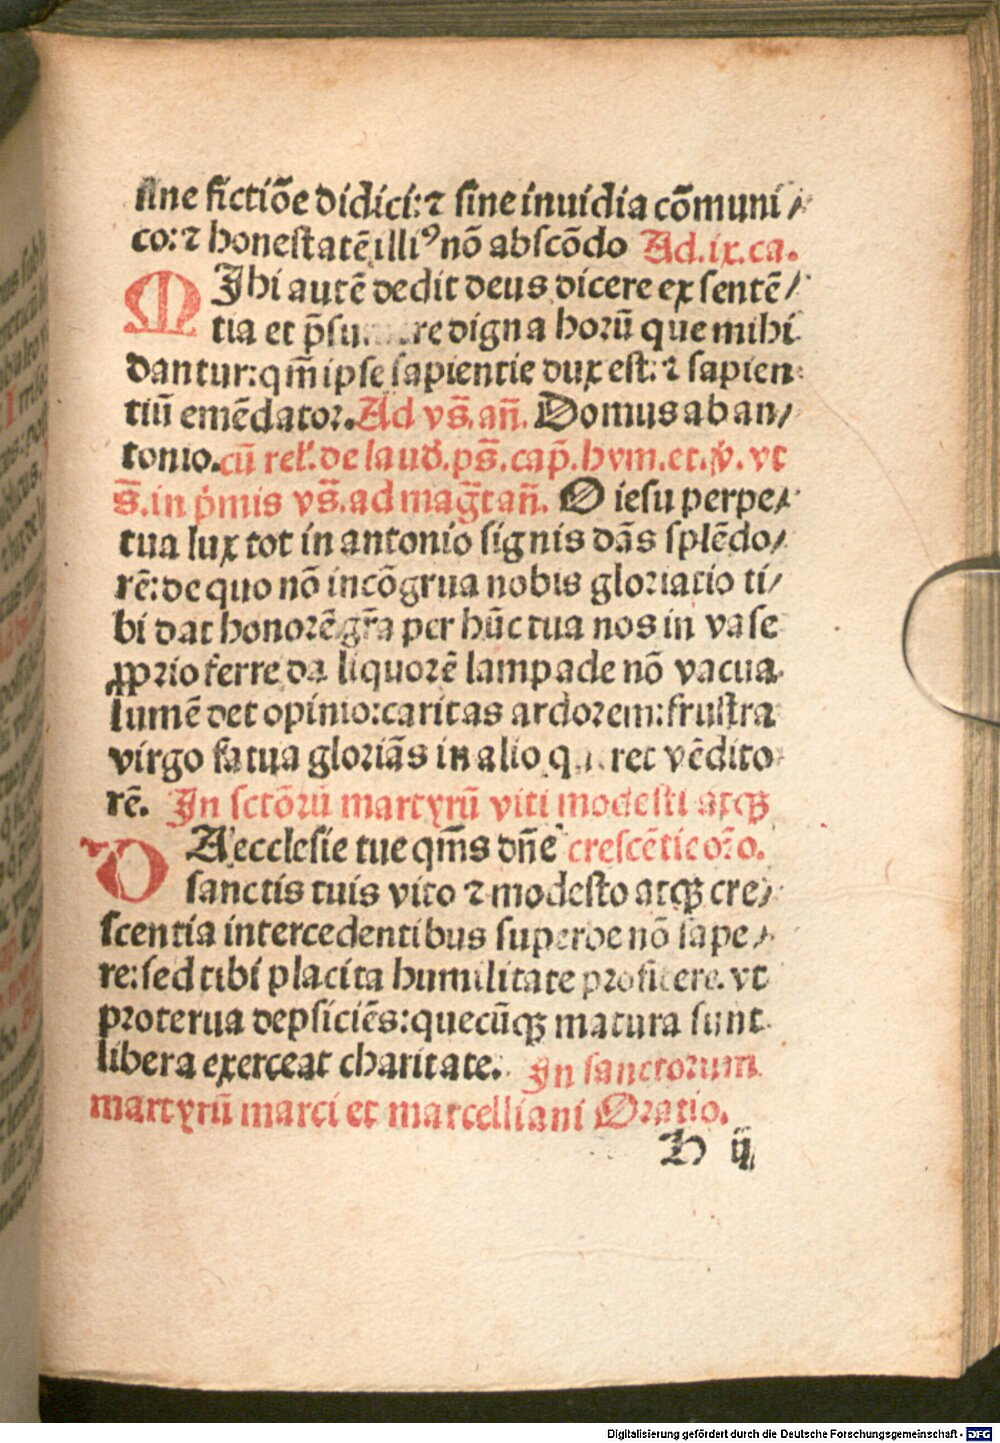 sine fictiōe didici: ⁊ sine inuidia cōmuni/
co: ⁊ honestatē illiꝰ nō abscōdo Ad.ix.ca.
MIhi autē dedit deus dicere ex sentē/
tia et p̄su re digna horū que mihi
dantur: qm̄ ipse sapientie dux est: ⁊ sapien
tiū emēdator. Ad vs̄. an̄. Domus ab an/
tonio. cū rel̄. de laud̄. ps̄. cap̄. hym. et. v̄. vt
s̄. in p̄mis vs̄. ad mag̅t an̄. O iesu perpe/
tua lux tot in antonio signis dās splēdo/
rē: de quo nō incōgrua nobis gloriatio ti/
bi dat honorē gr̄a per hūc tua nos in vase
ꝓprio ferre da liquorē lampade nō vacua
lumē det opinio: caritas ardorem: frustra
virgo fatua gloriās in alio q ret vēdito
rē. In sctōrū martyrū viti modesti atqꝫ
DA ecclesie tue qm̄s dn̄e crescētie oro.
sanctis tuis vito ⁊ modesto atqꝫ cre/
scentia intercedentibus superbe nō sape/
re: sed tibi placita humilitate proficere. vt
proterua depsiciēs: quecūqꝫ matura sunt
libera exerceat charitate. In sanctorum
martyrū marci et marcelliani Oratio.
H ij
Digitalisierung gefördert durch die Deutsche Forschungsgemeinschaft - DFG